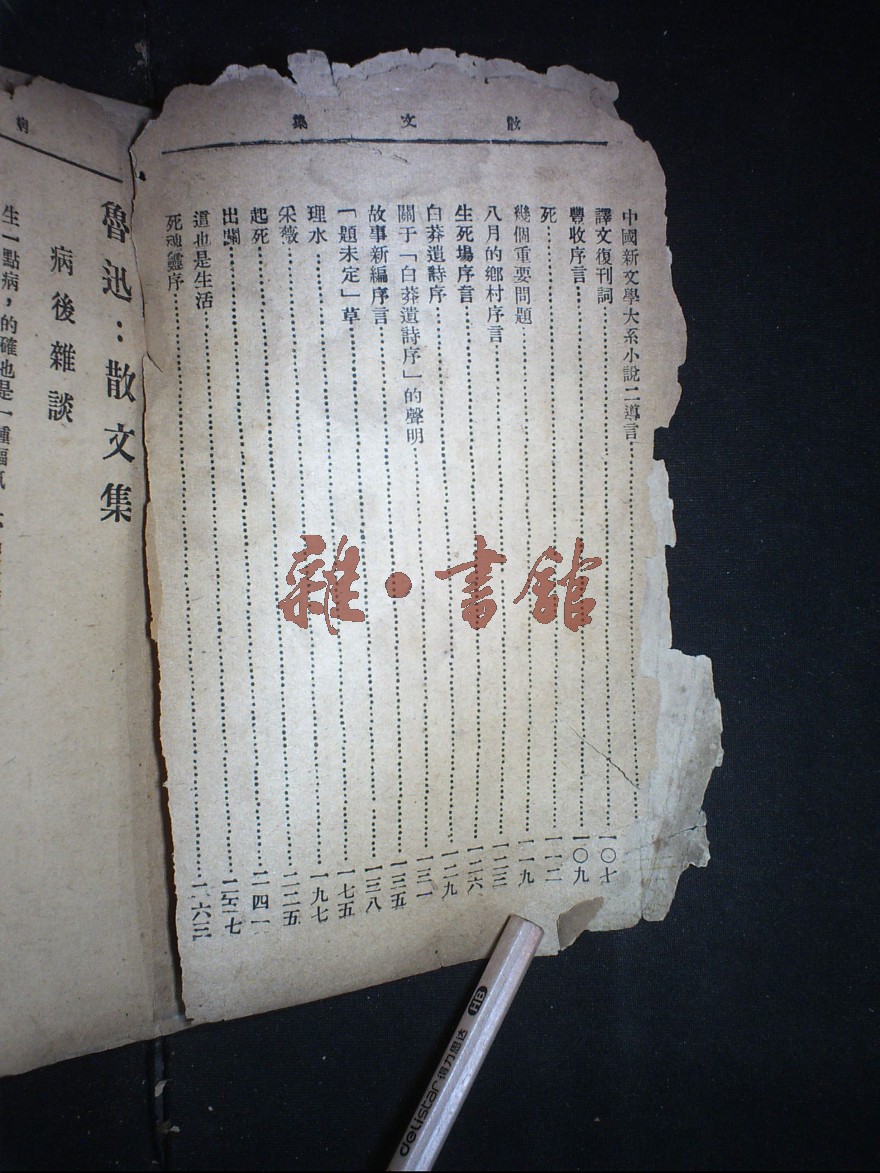 散文集
中國新文學大系小說二導言
譯文復刊詞……一〇七
豐收序言……一〇九
死……一一二
幾個重要問題……一一九
八月的鄉村序言……一二三
生死場序言……一二六
白莽遺詩序……一二九
關于「白莽遺詩序」的聲明……一三一
故事新編序言……一三五
「題未定」草……一三八
理水……一七五
采薇……一九七
起死……二二五
出關……二四一
這也是生活……二五七
死魂靈序……二六三
病
魯迅：散文集
病後雜談
生一點病，的確也是一種福氣
雜·書館
delistar 得力思达 HB